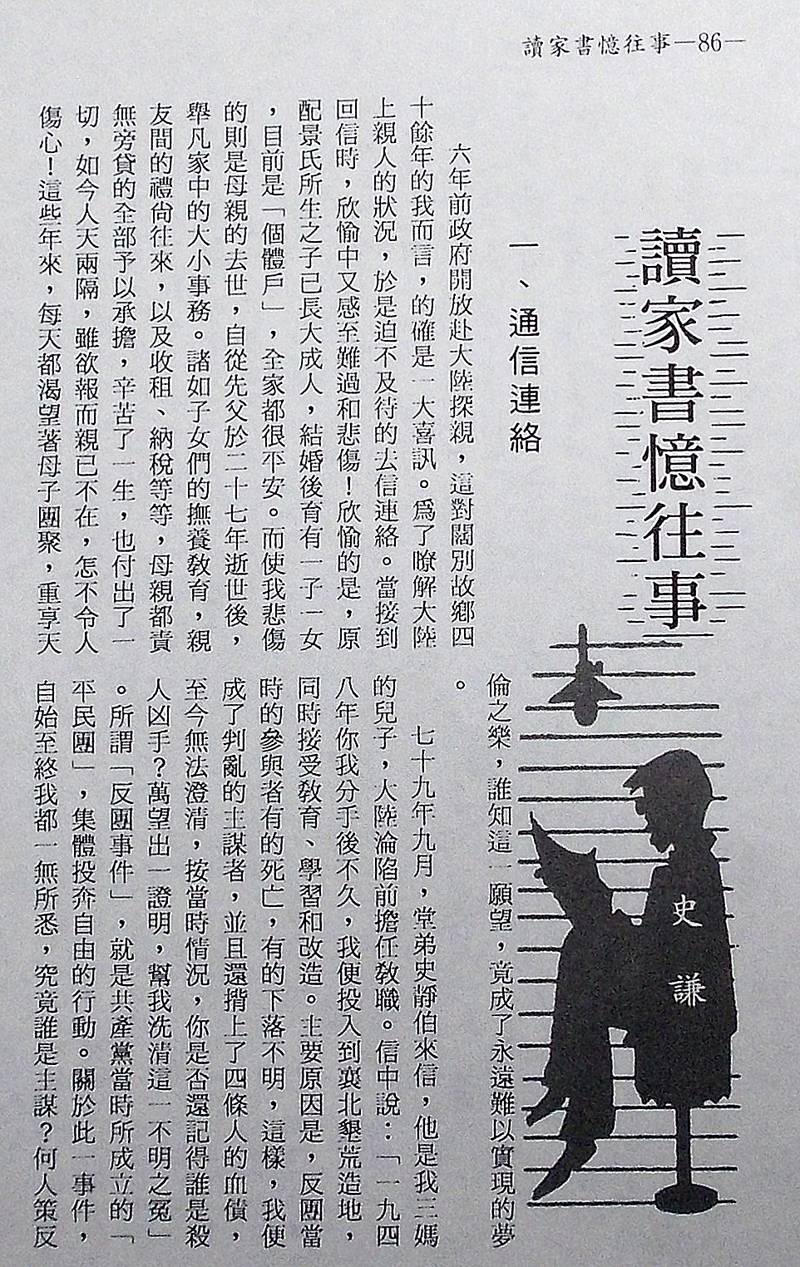 讀家書憶往事—86—
讀家書憶往事
史謙
一、通信連絡
六年前政府開放赴大陸探親，這對闊別故鄉四
十餘年的我而言，的確是一大喜訊。爲了瞭解大陸
上親人的狀況，於是迫不及待的去信連絡。當接到
回信時，欣愉中又感至難過和悲傷！欣愉的是，原
配景氏所生之子已長大成人，結婚後育有一子一女
，目前是「個體戶」，全家都很平安。而使我悲傷
的則是母親的去世，自從先父於二十七年逝世後，
舉凡家中的大小事務。諸如子女們的撫養教育，親
友間的禮尙往來，以及收租、納稅等等，母親都責
無旁貸的全部予以承擔，辛苦了一生，也付出了一
切，如今人天兩隔，雖欲報而親已不在，怎不令人
傷心！這些年來，每天都渴望著母子團聚，重享天
倫之樂，誰知這一願望，竟成了永遠難以實現的夢
。
七十九年九月，堂弟史靜伯來信，他是我三媽
的兒子，大陸淪陷前擔任教職。信中說：「一九四
八年你我分手後不久，我便投入到襄北墾荒造地，
同時接受教育、學習和改造。主要原因是，反團當
時的參與者有的死亡，有的下落不明，這樣，我便
成了判亂的主謀者，並且還揹上了四條人的血債，
至今無法澄清，按當時情況，你是否還記得誰是殺
人凶手？萬望出一證明，幫我洗清這一不明之冤」
。所謂「反團事件」，就是共產黨當時所成立的「
平民團」，集體投奔自由的行動。關於此一事件，
自始至終我都一無所悉，究竟誰是主謀？何人策反